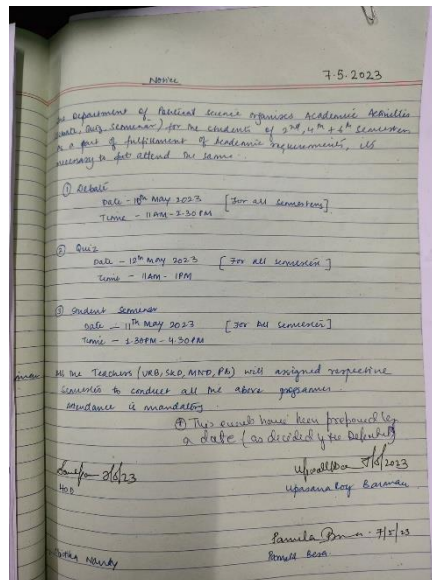 Notice 7.5.2023
Department of Political Science organises Academic Activities
Quiz, Seminar) for the students of 2nd, 4th & 6th Semesters
As a part of fulfillment of Academic requirements, its
necessary to attend the same.
① Debate
Date - 10th May 2023 [For all semesters]
Time - 11AM - 2.30 PM
② Quiz
Date - 12th May 2023 [For all semester]
Time - 11AM - 1PM
③ Student Seminar
Date - 11th May 2023 [For all semester]
Time - 1.30PM - 4.30PM
All the Teachers (URB, SKD, MND, PB) will assigned respective
Semester to conduct all the above programme
Attendance is mandatory.
④ This events have been postponed by
a date (as decided by the
HOD
Upasana Roy Barman
7/5/23
Nandy